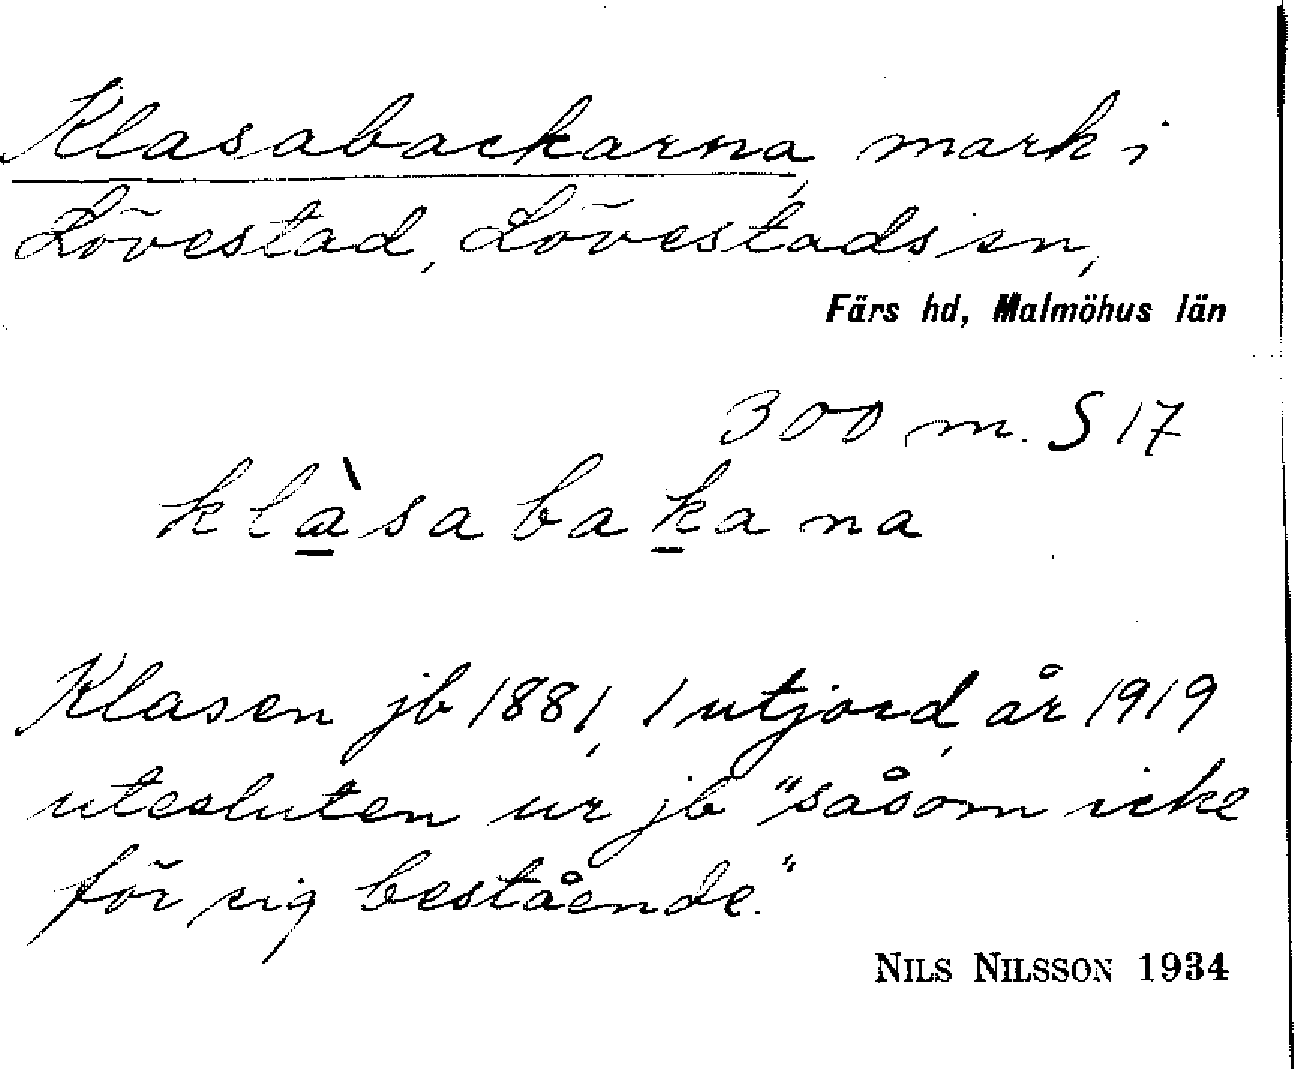 Klasabackarna, mark i
Lövestad, Lövestads sn,
Färs hd, Malmöhus län
300 m. S 17
klàsabakana
Klasen jb 1881, 1 utjord, år 1919
utesluten ur jb "såsom icke
för sig bestående."
NILS NILSSON 1934